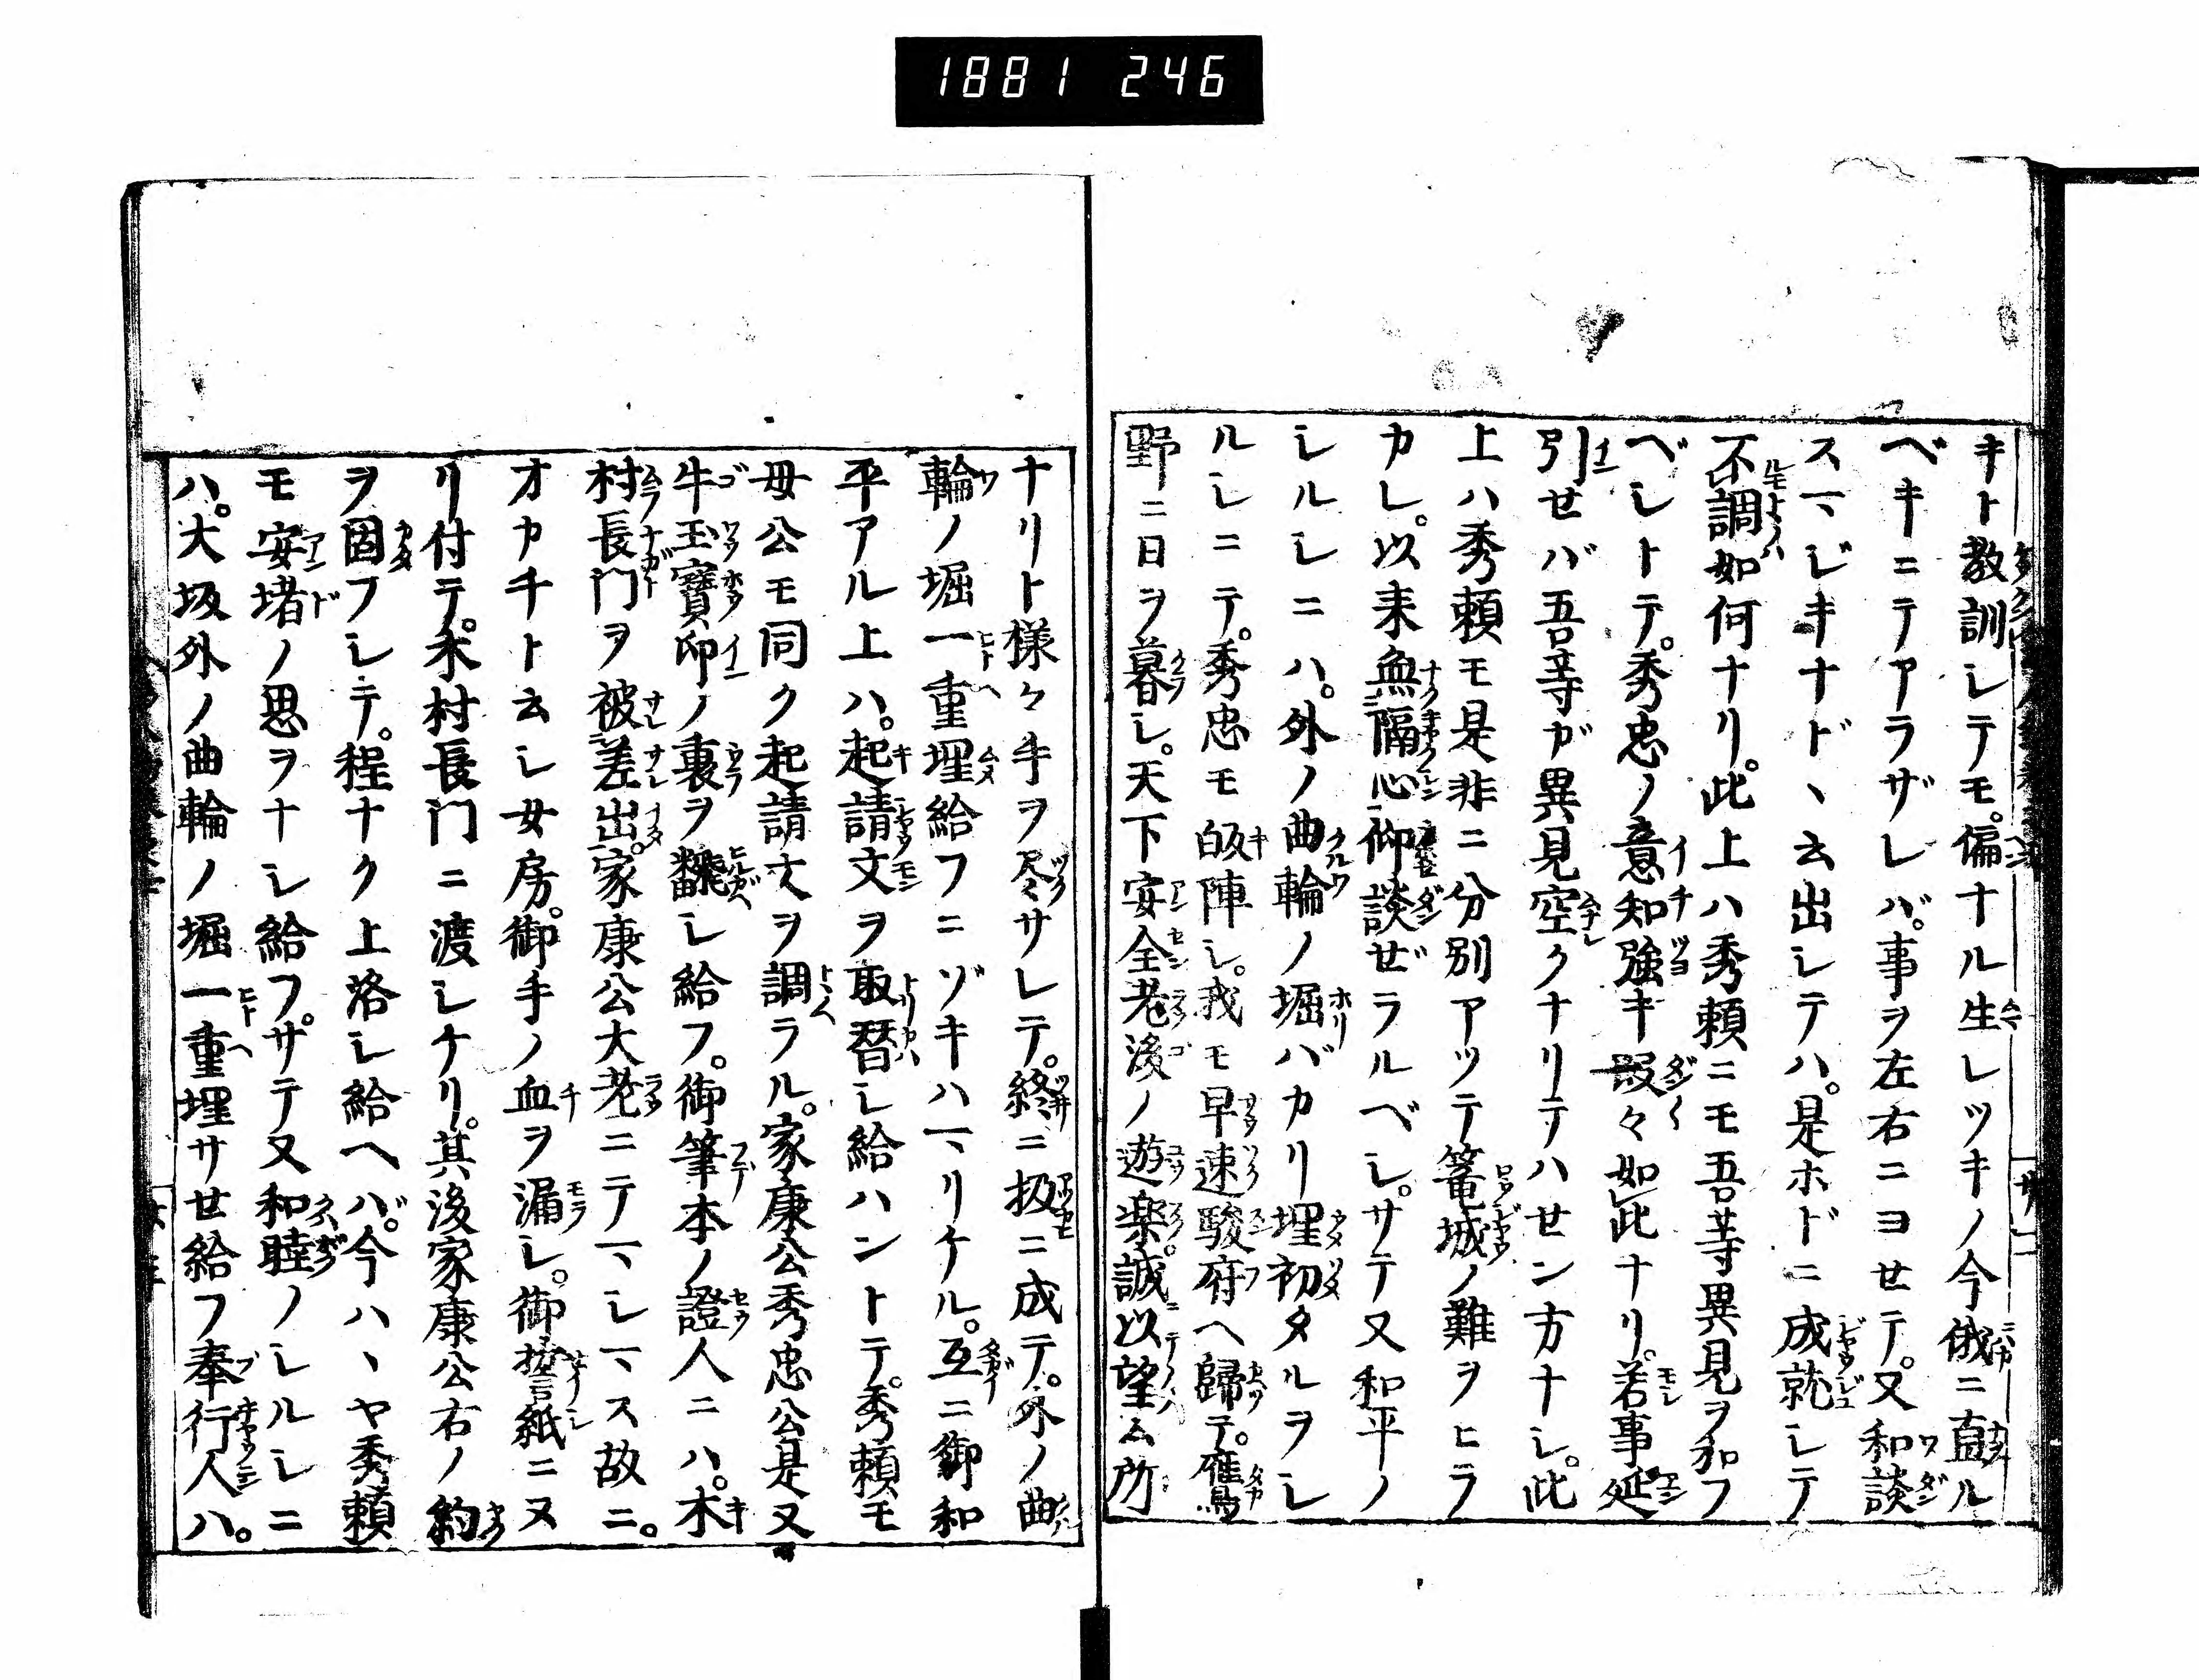 1881 246
キト教訓シテモ。偏ナル生レツキノ今俄ニ直ル
ベキニテアラザレバ。事ヲ左右ニヨセテ。又和談
スマジキナド、云出シテハ。是ホドニ成就シテ
不調如何ナリ。此上ハ秀頼ニモ吾等異見ヲ和フ
ベシトテ。秀忠ノ意知強キ段々如此ナリ。若事延
引せバ吾等ガ異見空クナリテハせン方ナシ。此
上ハ秀頼モ是非ニ分別アツテ篭城ノ難ヲヒラ
カレ。以来無隔心御談ぜラルベシ。サテ又和平ノ
シルシニハ。外ノ曲輪ノ堀バカリ埋初タルヲシ
ルシニテ。秀忠モ皈陣シ。我モ早速駿府ヘ歸テ。鷹
野ニ日ヲ暮シ。天下安全老後ノ遊楽誠以望ム所
ナリト様々手ヲ尽サレテ。終ニ扱ニ成テ。外ノ曲
輪ノ堀一重埋給フニゾキハマリケル。互ニ御和
平アル上ハ。起請文ヲ取替シ給ハントテ。秀頼モ
母公モ同ク起請文ヲ調ラル。家康公秀忠公是又
牛玉寶印ノ裏ヲ飜シ給フ。御筆本ノ證人ニハ。木
村長门ヲ被差出。家康公大老ニテマシマス故ニ。
オカチト云シ女房。御手ノ血ヲ漏シ。御誓紙ニヌ
リ付テ。木村長门ニ渡シケリ。其後家康公右ノ約
ヲ固フシテ。程ナク上洛シ給ヘバ。今ハ、ヤ秀頼
モ安堵ノ思ヲナシ給フ。サテ又和睦ノシルシニ
ハ。大坂外ノ曲輪ノ堀一重埋サせ給フ奉行人ハ。